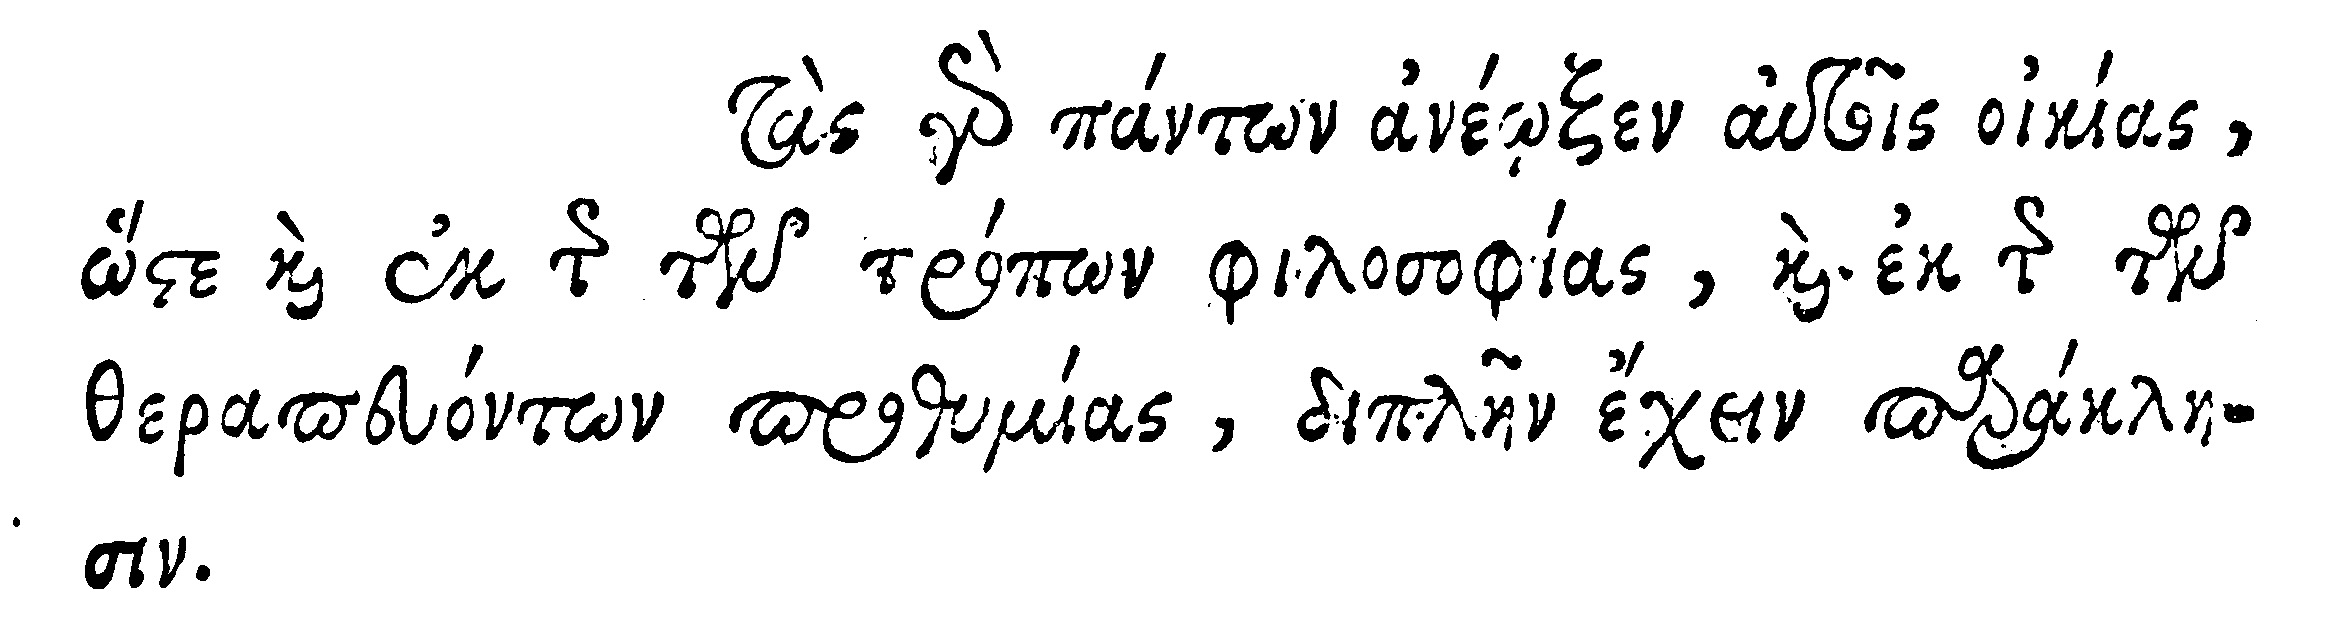 τὰς γὰρ πάντων ἀνέῳξεν αὐτοῖς οἰκίας,
ὥστε καὶ ἐκ τῆς τῶν τρόπων φιλοσοφίας, καὶ ἐκ τῆς τῶν
θεραπευόντων προθυμίας, διπλῆν ἔχειν παράκλη-
σιν.